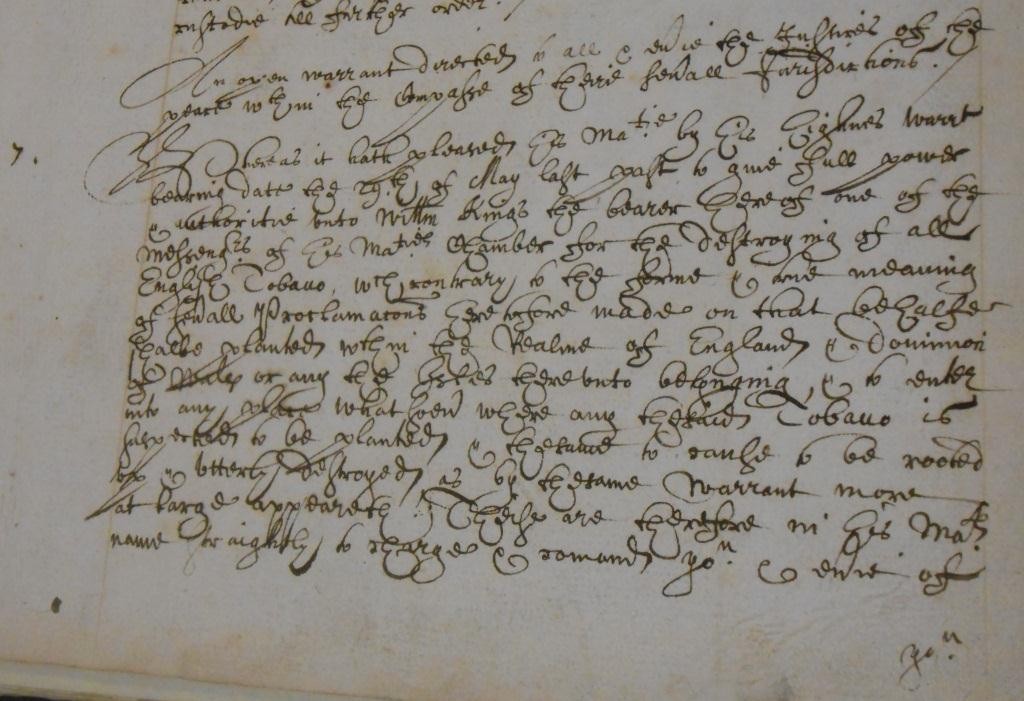 custodie till further order.
An open warrant directed to all & everie the Justices of the
peace wthin the Compasse of theire severall Jurisdictions.
7.
Whereas it hath pleased his Matie by his highnes warrt
bearing date the 29th of May last past to give full power
& authoritie unto Willm Kings the bearer hereof one of the
Messengrs of his Maties Chamber for the destroying of all
English Tobacco, wch contrary to the forme & true meaning
of severall Proclamacons heretofore made on that behalfe
halbe planted wthin the Realme of England & Dominion
of Wales or any the Isles thereunto belonging, & to enter
into any place whatsoever where any thesaid Tobacco is
suspected to be planted & thesame to cause to be rooted
up & utterly destroyed as by thesame Warrant more
at large appeareth. Theise are therefore in his Mats
name straightly to charge & comand you & everie of
you